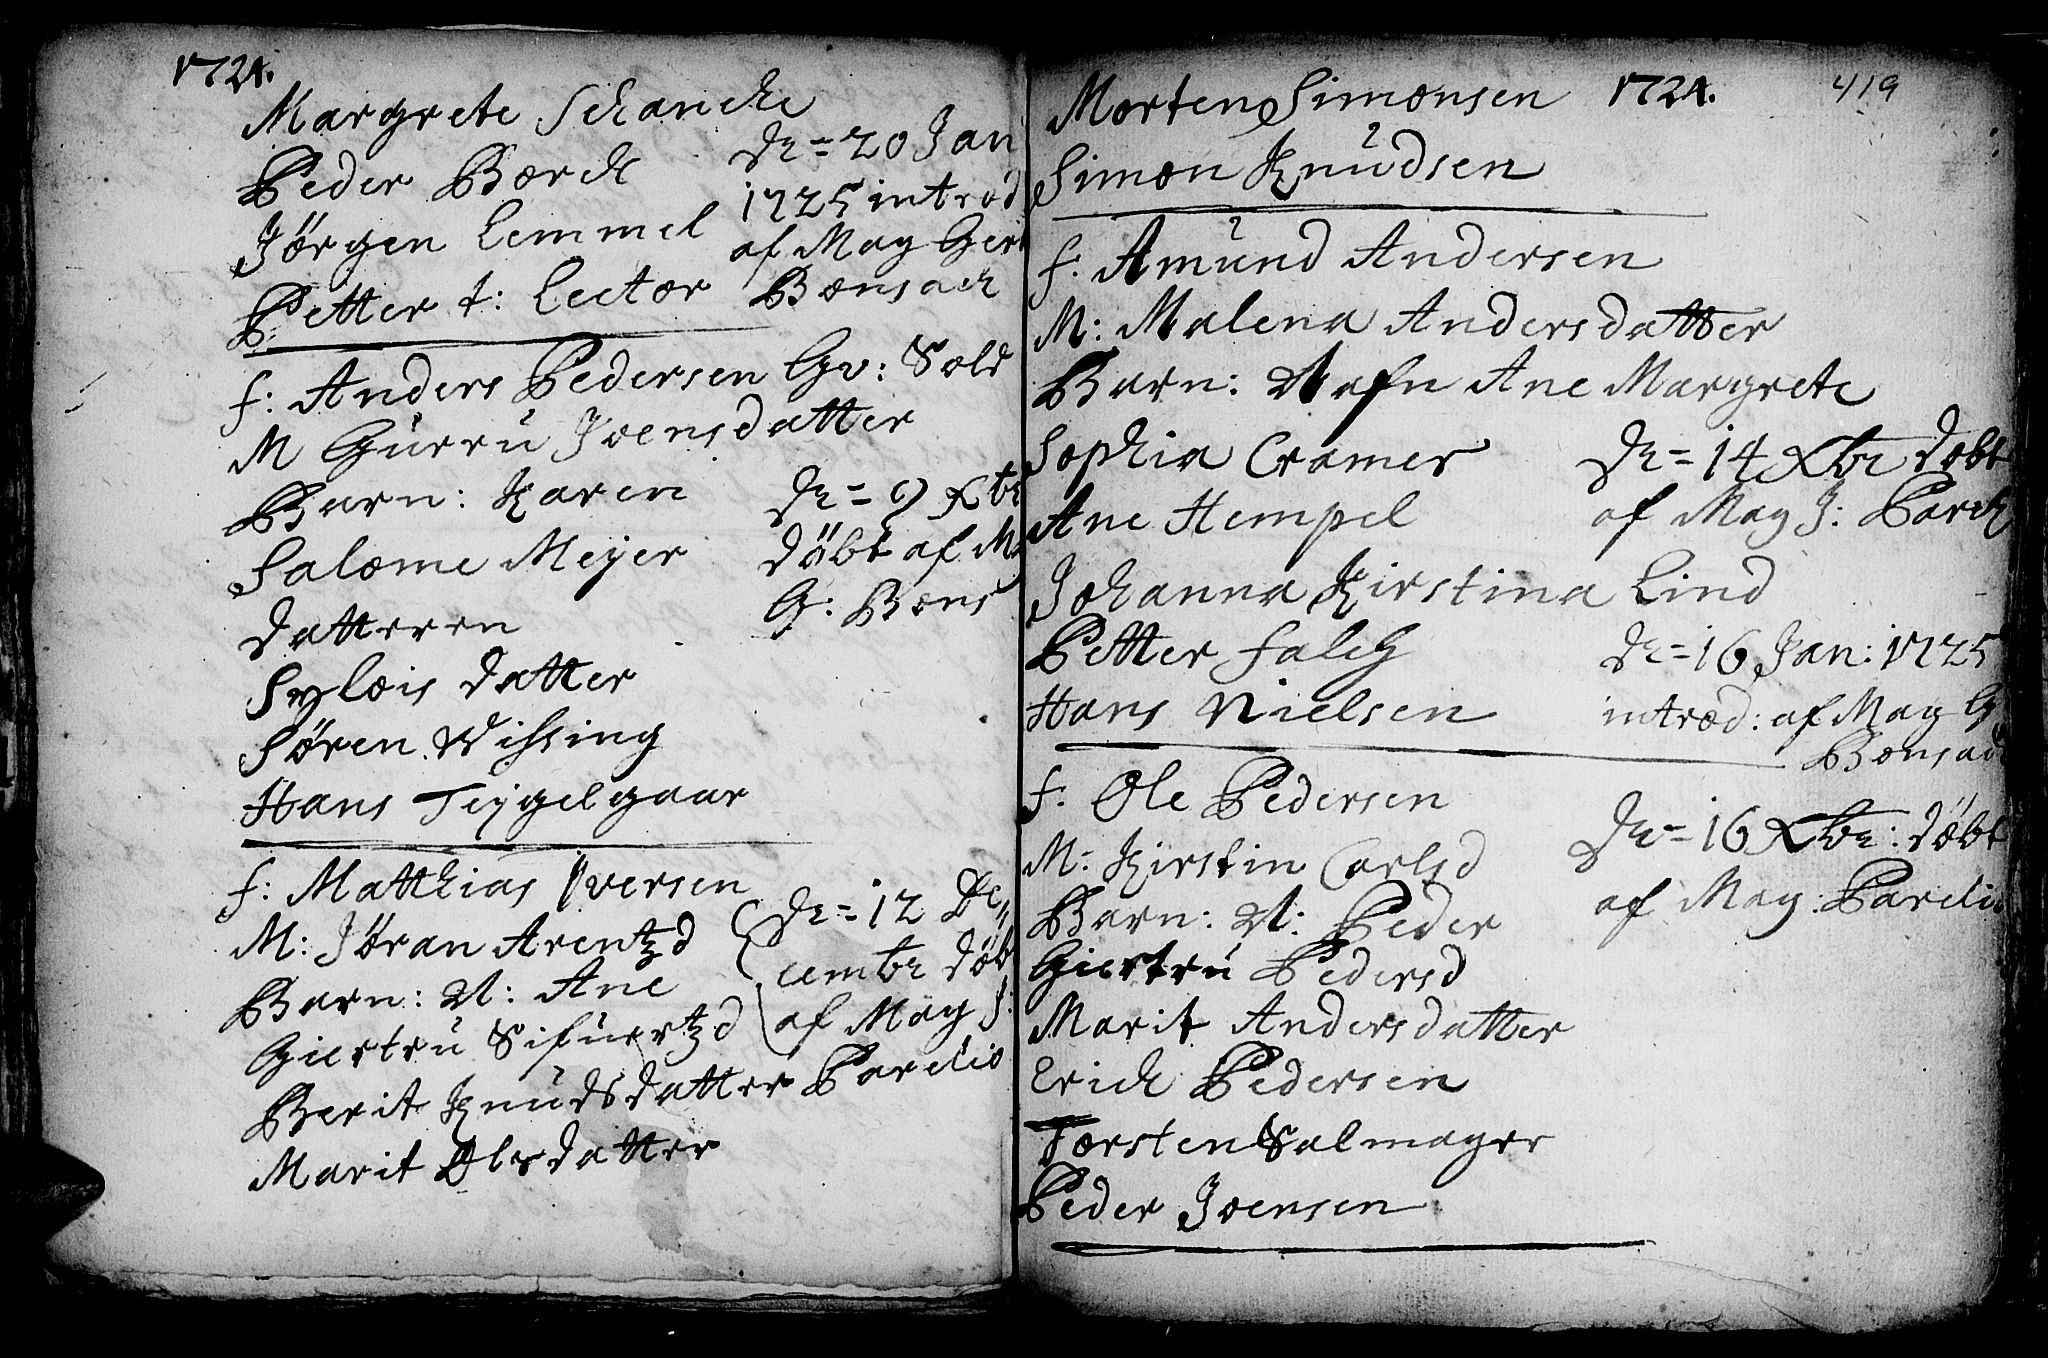 1724.
Margrete Schanche
Peder Borch
Jørgen Lemmel
Petter t: Lector
D= 20 Jan
1725 introd
af Mag Ger
Bonsach
f: Anders Pedersen Gv: Sold
M Gurru Joensdatter
Barn: Karen
Salome Meyer
datteren
Sylois datter
Søren Wissing
Hans Teygelgaar
D= 9 Xbr
døbt af M
G: Bons
f: Matthias Iversen
M: Jøran Arentzd
Barn: N: Ane
Giertru Sifuertzd
Berit Knudsdatter
Marit Olsdatter
D= 12 De,,
cembr døb
af Mag J:
Parelio
Morten Simonsen 1724. 419
Simon Knudsen
f: Amund Andersen
M: Malena Andersdatter
Barn: Nafn Ane Margrete
Sophia Cramer
Ane Hempel
Johanna Kirstina Lind
Petter Falch
Hans Nielsen
D= 14 Xbr døbt
af Mag J: Parel
D= 16 Jan: 1725
introd: af Mag G
Bonsac
f: Ole Pedersen
M: Kirstin Carlsd
Barn: N: Peder
Giertru Pedersd
Marit Andersdatter
Erich Pedersen
Torsten Salmager
Peder Joensen
D= 16 Xbr: døbt
af Mag: Pareli